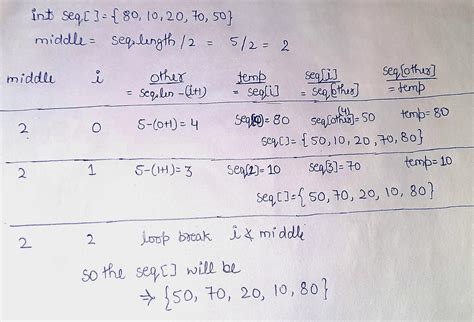 int seq[] = { 80, 10, 20, 70, 50}
middle = seq.length/2 = 5/2 = 2
middle i other temp seq[i] seq[other]
= seq.len -(i+1) = seq[i] = seq[other] = temp
2 0 5-(0+1) = 4 seq[0] = 80 seq[other](4) = 50 temp = 80
seq[] = { 50, 10, 20, 70, 80}
2 1 5-(1+1) = 3 seq[1] = 10 seq[3] = 70 temp = 10
seq[] = { 50, 70, 20, 10, 80}
2 2 loop break i middle
so the seq[] will be
⇒ {50, 70, 20, 10, 80}